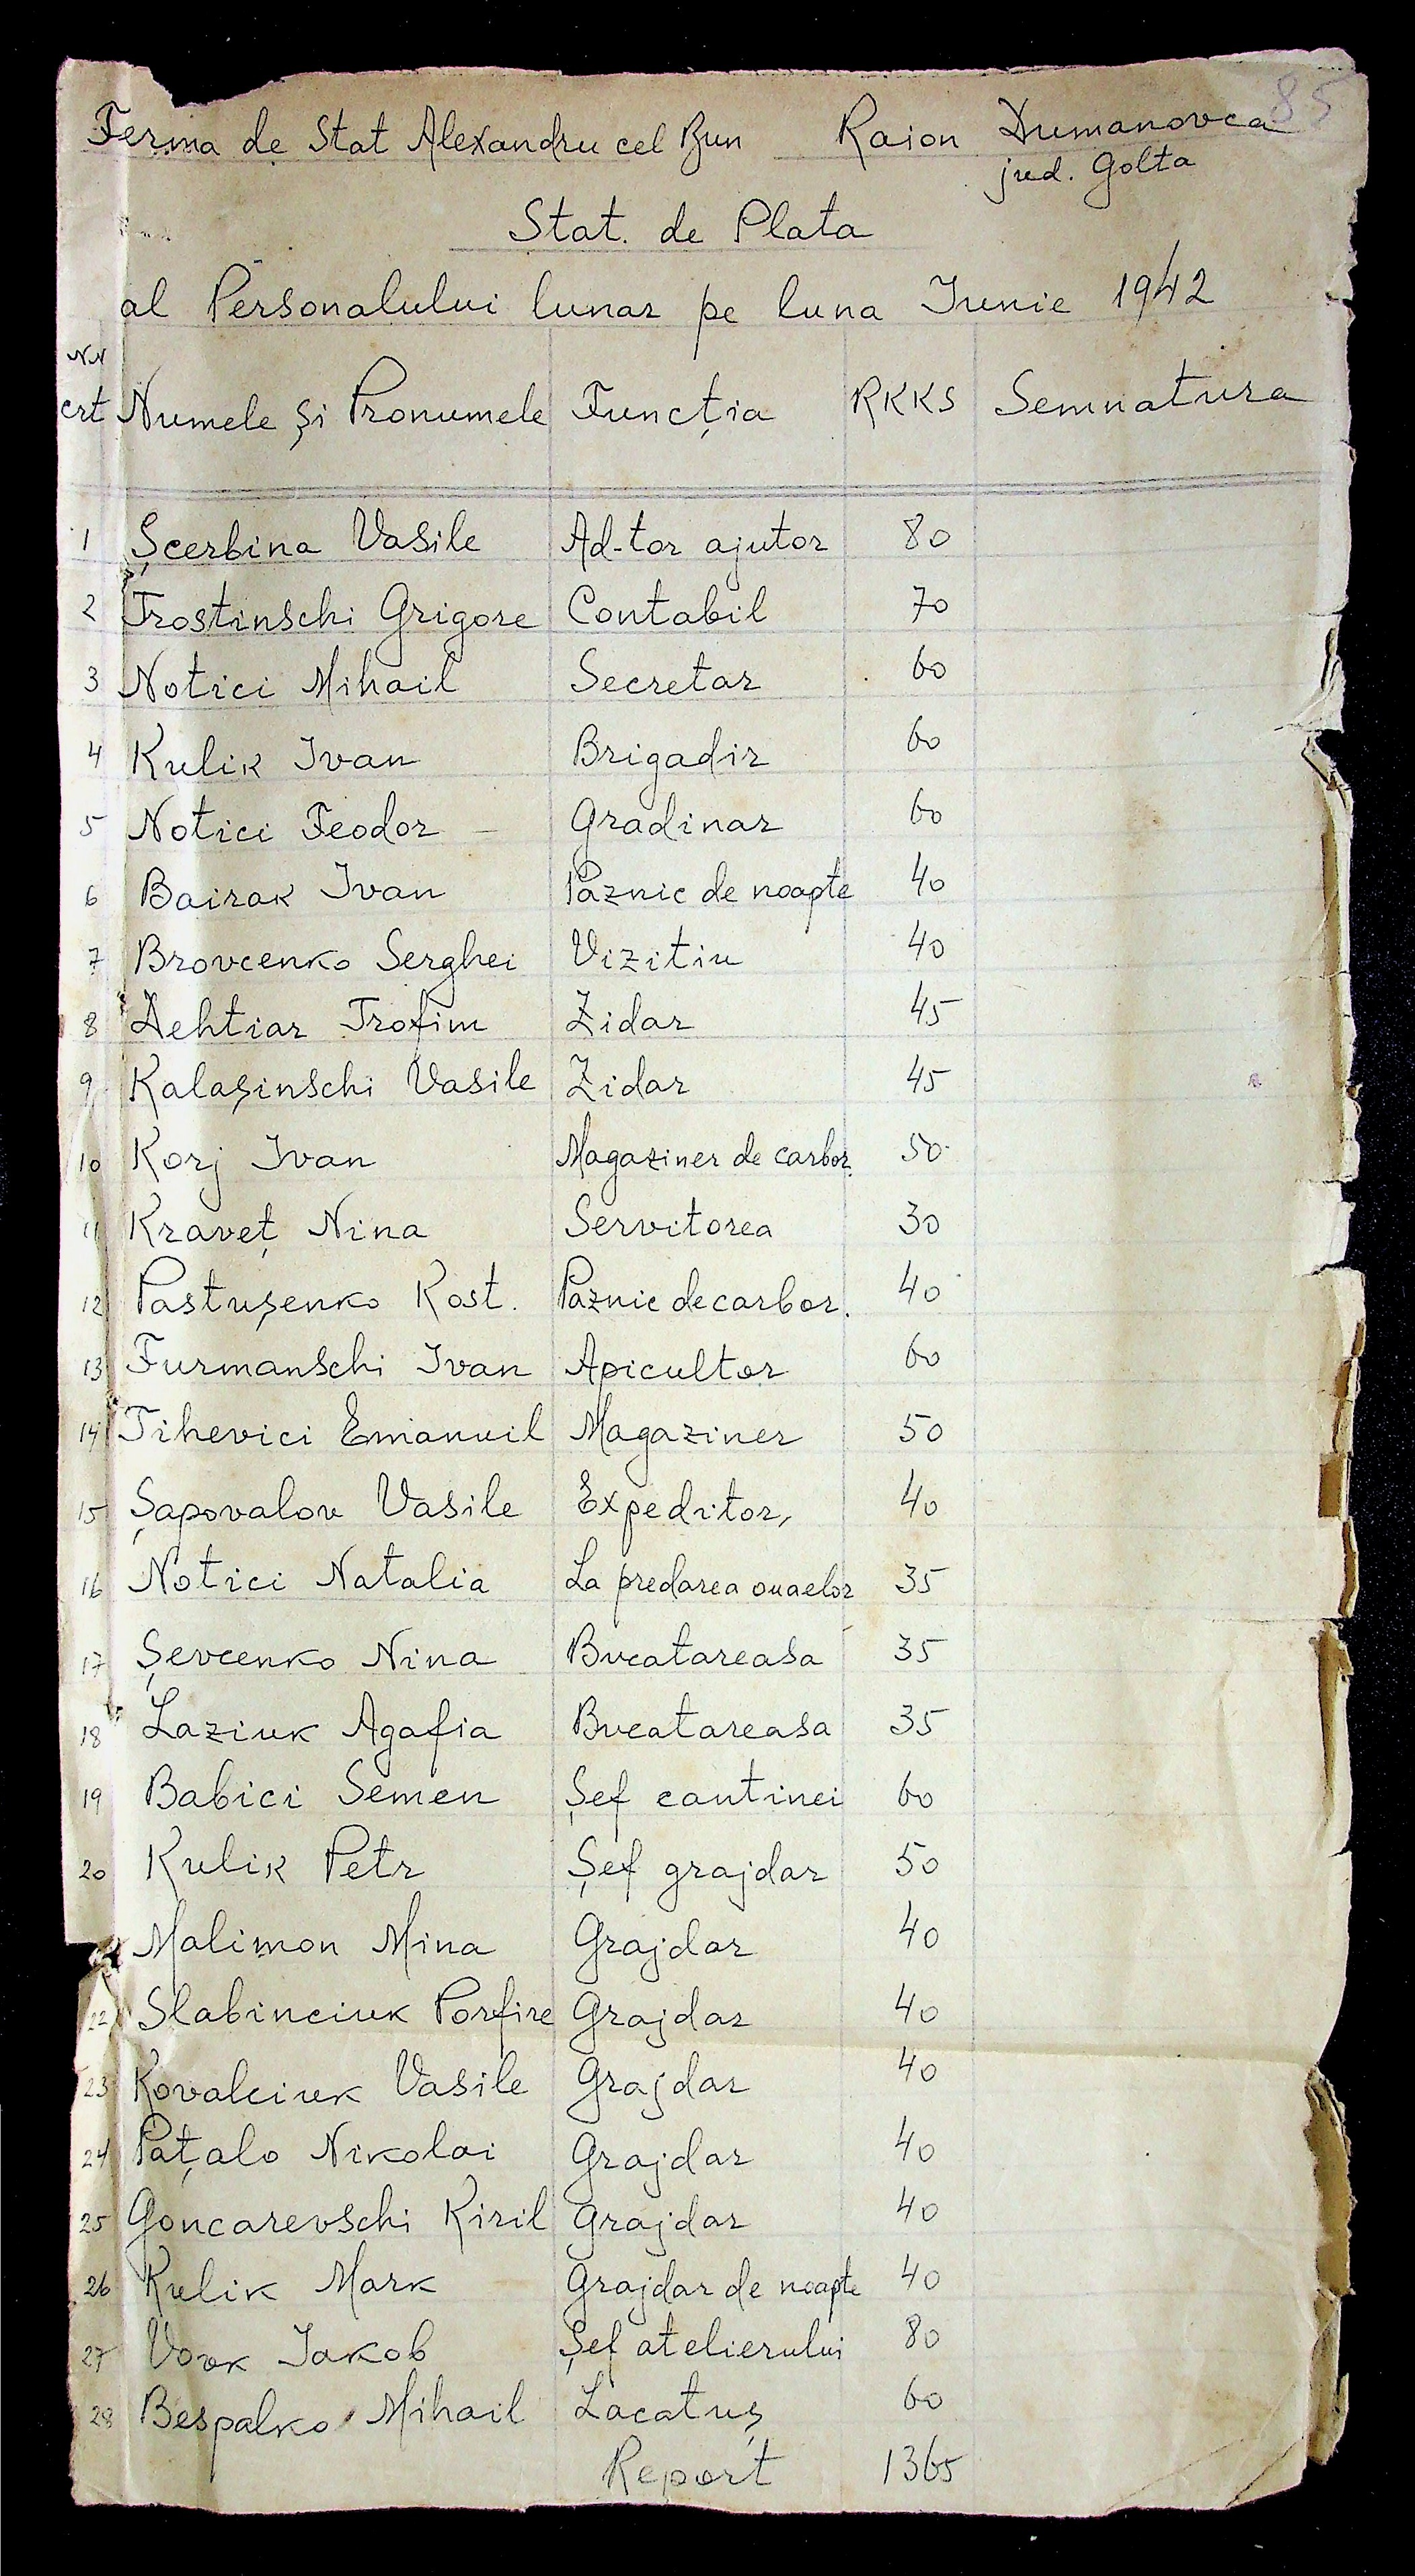 85
Ferma de Stat Alexandru cel Bun Raion Dumanovca
jud. Golta
Stat. de Plata
al Personalului lunar pe luna Iunie 1942
NN crt Numele și Pronumele Funcția RKKS Semnatura
1 Șcerbina Vasile Ad-tor ajutor 80
2 Trostinschi Grigore Contabil 70
3 Notici Mihail Secretar 60
4 Kulik Ivan Brigadir 60
5 Notici Feodor – Gradinar 60
6 Bairak Ivan Paznic de noapte 40
7 Brovcenko Serghei Vizitiu 40
8 Dehtiar Trofim Zidar 45
9 Kalașinschi Vasile Zidar 45
10 Korj Ivan Magaziner de carbor. 50
11 Kraveț Nina Servitorea 30
12 Pastușenko Kost. Paznic de carbor. 40
13 Furmanschi Ivan Apicultor 60
14 Tihevici Emanuil Magaziner 50
15 Șapovalov Vasile Expeditor, 40
16 Notici Natalia La predarea ouaelor 35
17 Șevcenko Nina Bucatareasa 35
18 Laziuk Agafia Bucatareasa 35
19 Babici Semen Șef cantinei 60
20 Kulik Petr Șef grajdar 50
Malimon Mina Grajdar 40
22 Slabinciuk Porfire Grajdar 40
23 Kovalciuk Vasile Grajdar 40
24 Pațalo Nikolai Grajdar 40
25 Goncarevschi Kiril Grajdar 40
26 Kulik Mark Grajdar de noapte 40
27 Vovk Iakob Șef atelierului 80
28 Bespalko Mihail Lacatuș 60
Report 1365